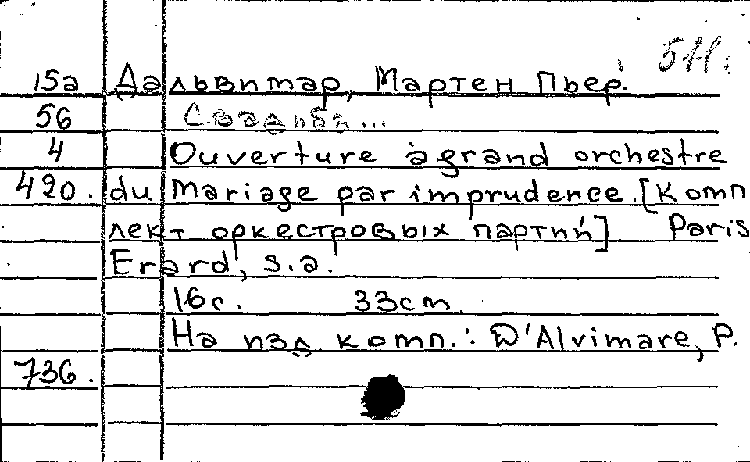 511.
15а Дальвимар, Мартен Пьер.
56 Свадьба...
4 Ouverture à grand orchestre
420. du Mariage par imprudence. [Комп
лект оркестровых партий] Paris
Erard, s.a.
16с. 33cm.
На изд. комп.: D'Alvimare, P.
736.